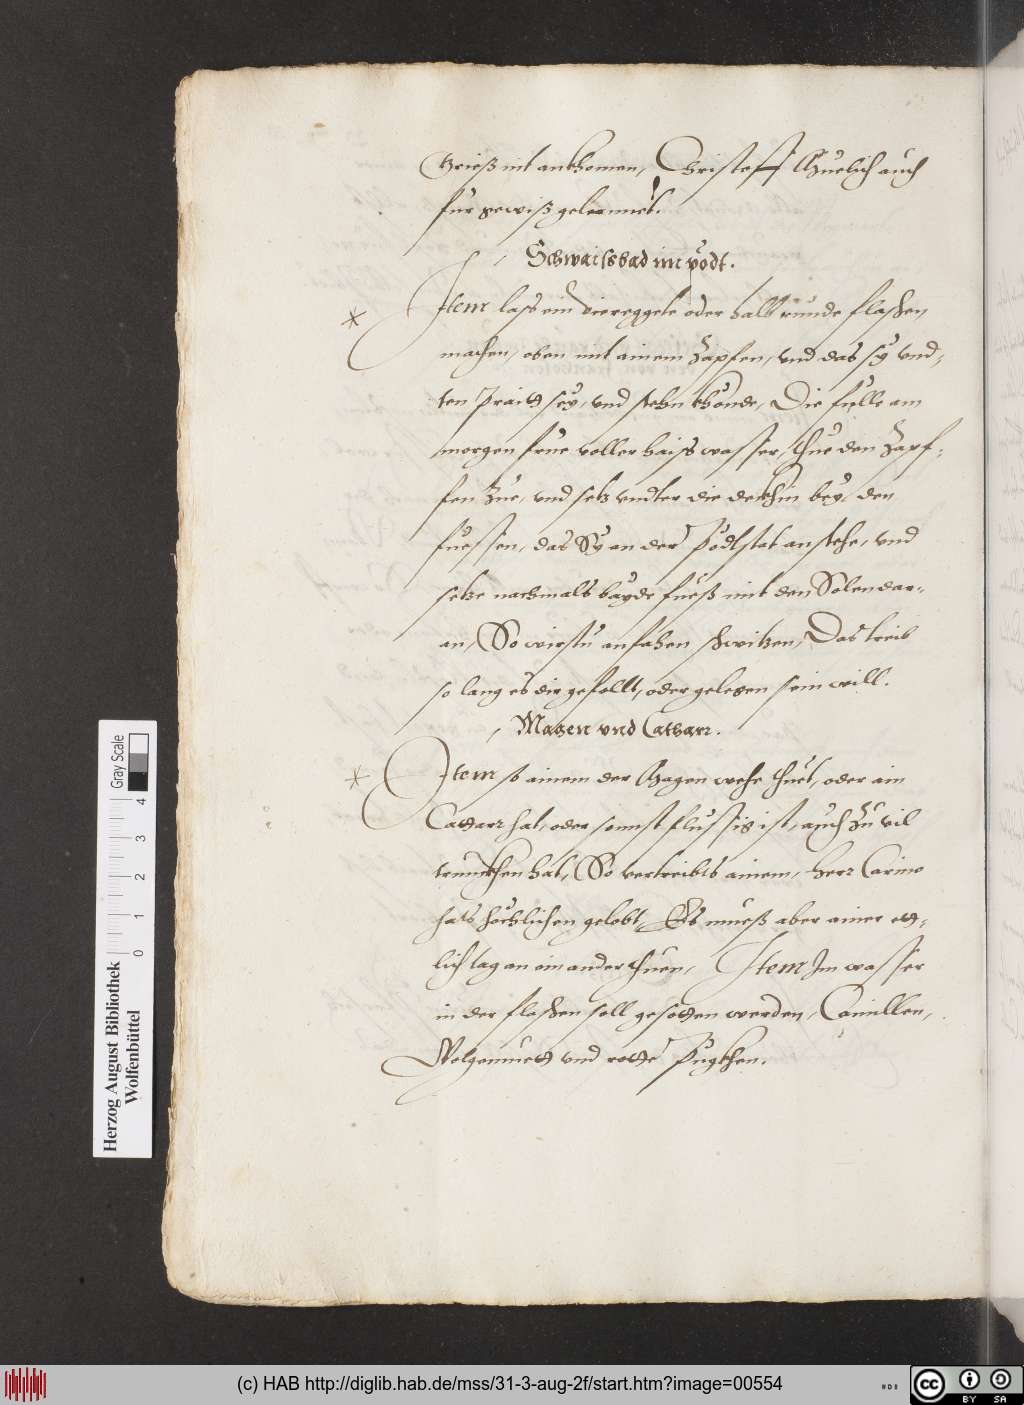 Grieß nit ankhomen, Christoff Ehuelich auch
für gewiß gelernnet.
Schwaißbad im pödt.
Item lass ein viereggete oder halb runde flaschen
machen, oben mit ainem Zapfen, vnd das sy vnd-
ten praitt sey, vnd stehn khönde, Die fülle am
morgen frue voller haiss wasser, thue den Zapf-
fen zue, vnd setz vndter die dekhin bey den
fuessen, das Sy an der Pödtstat anstehe, vnd
setze nachmals bayde füeß mit den Solen dar-
an, So wirstu anfahen schwitzen, Das treib
so lang es dir gefellt, oder gelegen sein will.
Magen vnd Catharr.
Item so ainem der Magen wehe thuet, oder ain
Cattarr hat, oder sonnst flüssig ist, auch zu vil
trunckhen hat, So vertreibts ainem, herr Carino
hats höchlichen gelobt, Es mueß aber ainer ett-
lich tag an ein ander thuen, Item Im wasser
in der flaschen soll gesotten werden, Camillen,
Wolgemuett vnd rotte Puggken.
Herzog August Bibliothek
Wolfenbüttel
0 1 2 3 4
Gray Scale
(c) HAB http://diglib.hab.de/mss/31-3-aug-2f/start.htm?image=00554
cc BY SA